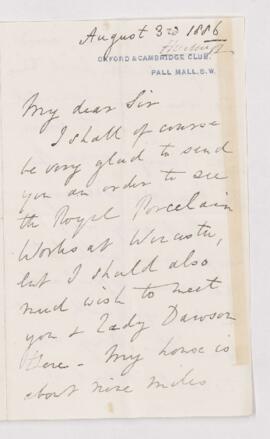 August 3rd 1886
OXFORD & CAMBRIDGE CLUB,
PALL MALL, S.W.
My dear Sir
I shall of course
be very glad to send
you an order to see
the Royal Porcelain
Works at Worcester,
but I should also
much wish to meet
you & Lady Dawson
there - My house is
about nine miles